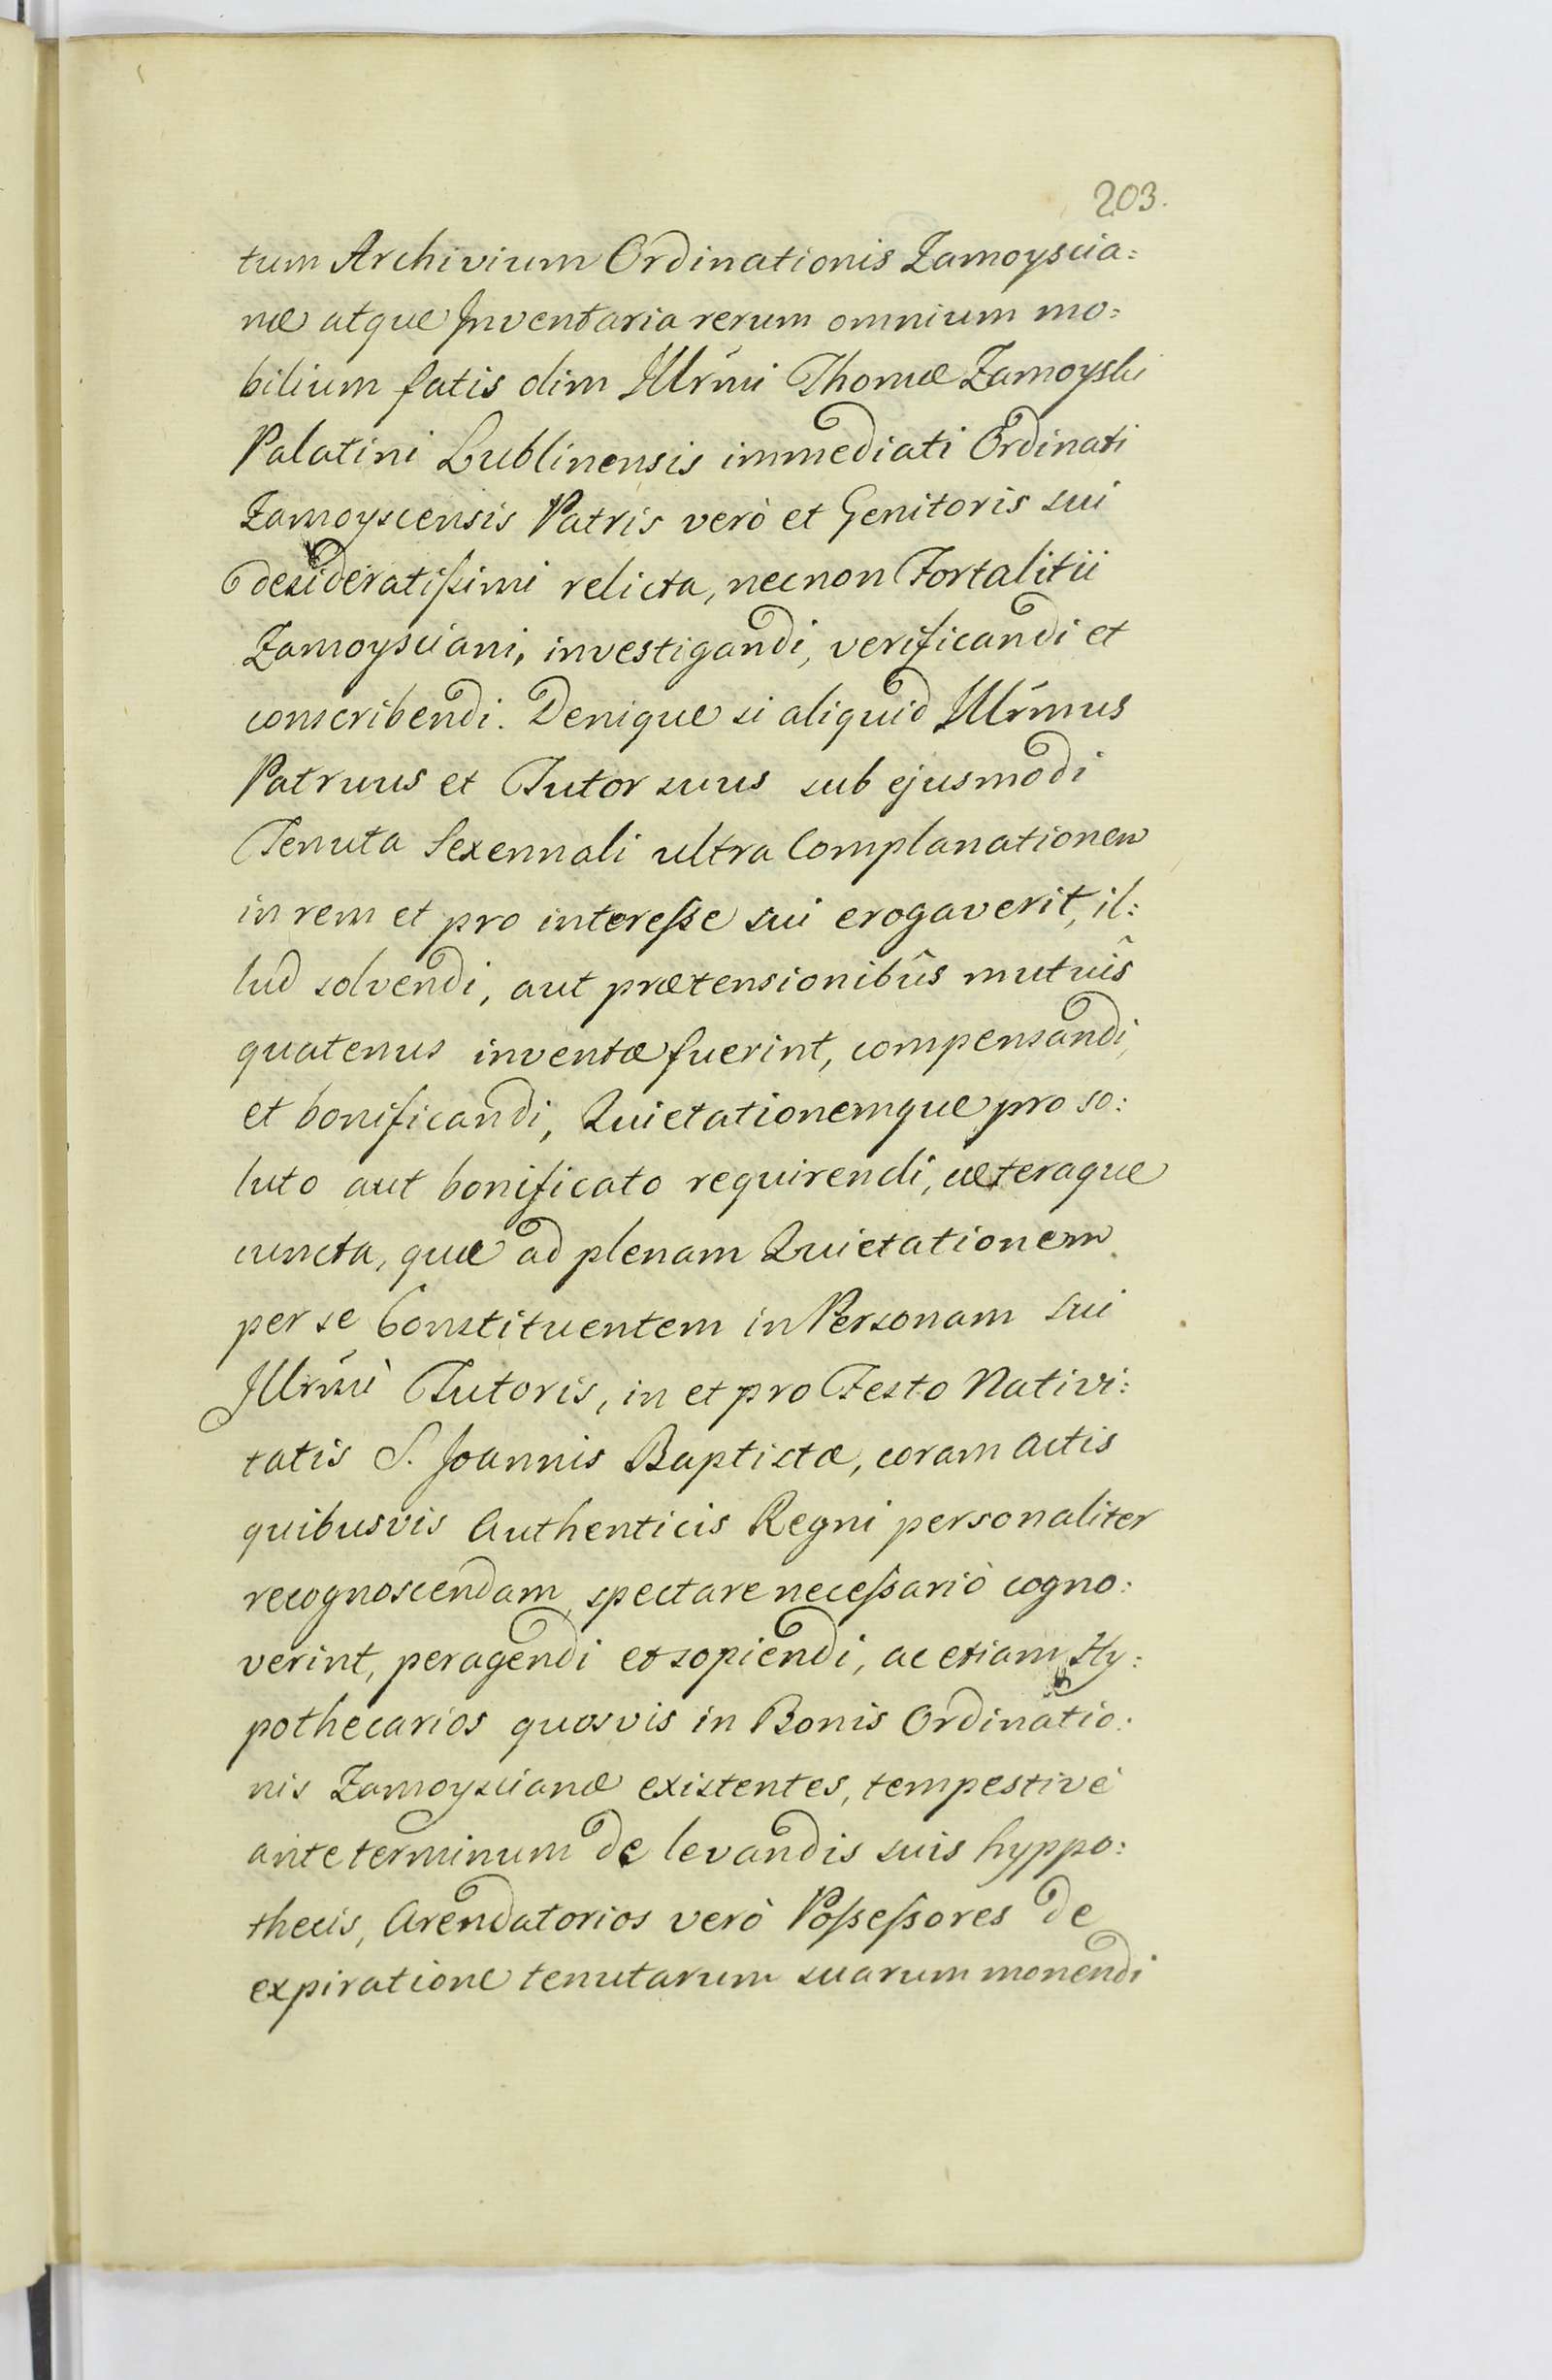 203.
tum Archivium Ordinationis Zamoyscia:
næ atque Inventaria rerum omnium mo:
bilium fatis olim Illr̃mi Thomæ Zamoyski
Palatini Lublinensis immediati Ordinati
Zamoyscensis Patris verò et Genitoris sui
desideratiſsimi relicta, necnon Fortalitii
Zamoysciani, investigandi, verificandi et
conscribendi. Denique si aliquid Illr̃mus
Patruus et Tutor suus sub ejusmodi
Tenuta Sexennali ultra Complanationem
in rem et pro intereſse sui erogaverit, il:
lud solvendi, aut prætensionibûs mutuîs
quatenus inventæ fuerint, compensandi,
et bonificandi, Quietationemque pro so:
luto aut bonificato requirendi, cæteraque
cuncta, quæ ad plenam Quietationem
per se Constituentem in Personam sui
Illr̃mi Tutoris, in et pro Festo Nativi:
tatis S. Joannis Baptistæ, coram Actis
quibusvis Authenticis Regni personaliter
recognoscendam, spectare neceſsariò cogno:
verint, peragendi et sopiendi, ac etiam Hy:
pothecarios quosvis in Bonis Ordinatio:
nis Zamoyscianæ existentes, tempestivè
ante terminum de levandis suis hyppo:
thecis, Arendatorios verò Poſseſsores de
expiratione tenutarum suarum monendi